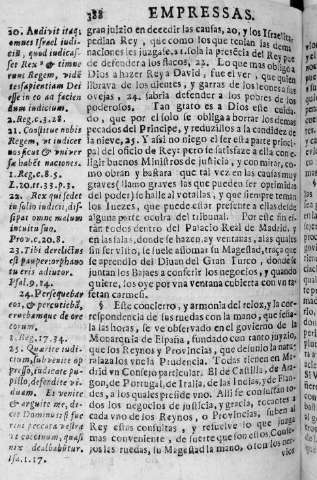 388 EMPRESSAS.
20. Audivit itaq;
omnes Israel iudi-
cium, quod iudicas-
set Rex & timue
runt Regem, vidē
tes sapientiam Dei
esse in eo ad facien
dum iudicium.
2. Reg. c. 3. 28.
21. Constitue nobis
Regem, ut iudicet
nos, sicut & univer
sæ habēt nationes.
1. Reg. c. 8. 5.
L. 20. tt. 23. p. 3.
22. Rex qui sedet
in solio iudicij, dis-
sipat omne malum
intuitu suo.
Prov. c. 20. 8.
23. Tibi derelictus
est pauper: orphano
tu eris adiutor.
Psal. 9. 14.
24. Persequebar
eos, & percutiebā,
eruebamque de ore
eorum.
1. Reg. 17. 34.
25. Quærite iudi-
cium, subvenite op
presso, iudicate pu-
pillo, defendite vi-
duam. Et venite
& arguite me, di-
cit Dominus: si fue
rint peccata vestra
ut coccinum, quasi
nix dealbabuntur.
Isa. 1. 17.
gran juizio en decedir las causas, 20, y los Israelitas
pedian Rey, que como los que tenian las demas
naciones les juzgase. 21. sola la presēcia del Rey pue
de defender a los flacos, 22. Lo que mas obligó a
Dios a hazer Rey a David, fue el ver, que quien
librava de los dientes, y garras de los leones sus
ovejas, 24. sabria defender a los pobres de los
poderosos. Tan grato es a Dios este cuida-
do, que por el solo se obliga a borrar los demas
pecados del Principe, y reduzillos a la candidez de
la nieve, 25. Y asi no niego el ser esta parte princi-
pal del oficio de Rey: pero se satisfaze a ella con e-
ligir buenos Ministros de justicia, y con mirar, co-
mo obran y bastara que tal vez en las causas muy
graves (llamo graves las que pueden ser oprimidas
del poder) se halle al votallas, y que siempre teman
los Iuezes, que puede estar presente a ellas desde
alguna parte oculta del tribunal. Por este fin es-
tan todos dentro del Palacio Real de Madrid, y
en las salas, donde se hazen, ay ventanas, a las quales
sin ser visto, se suele asomar su Magestad, traça que
se aprendio del Divan del Gran Turco, donde se
juntan los Bajaes a conferir los negocios, y quando
quiere, los oye por una ventana cubierta con un ta-
fetan carmesi.
§ Este concierto, y armonia del relox, y la cor-
respondencia de sus ruedas con la mano, que seña-
la las horas, se ve observado en el govierno de la
Monarquia de España, fundado con tanto juizio,
que los Reynos y Provincias, que desunio la natura-
leza los une la Prudencia. Todas tienen en Ma-
drid un Consejo particular. El de Castilla, de Ara-
gon, de Portugal, de Italia, de las Indias, y de Flan-
des, a los quales preside uno. Alli se consultan to-
dos los negocios de justicia, y gracia, tocantes a
cada uno de los Reynos, o Provincias, suben al
Rey estas consultas, y resuelve lo que juzga
mas conveniente, de suerte que son estos Conse-
jos las ruedas, su Magestad la mano, o son los ner-
vios